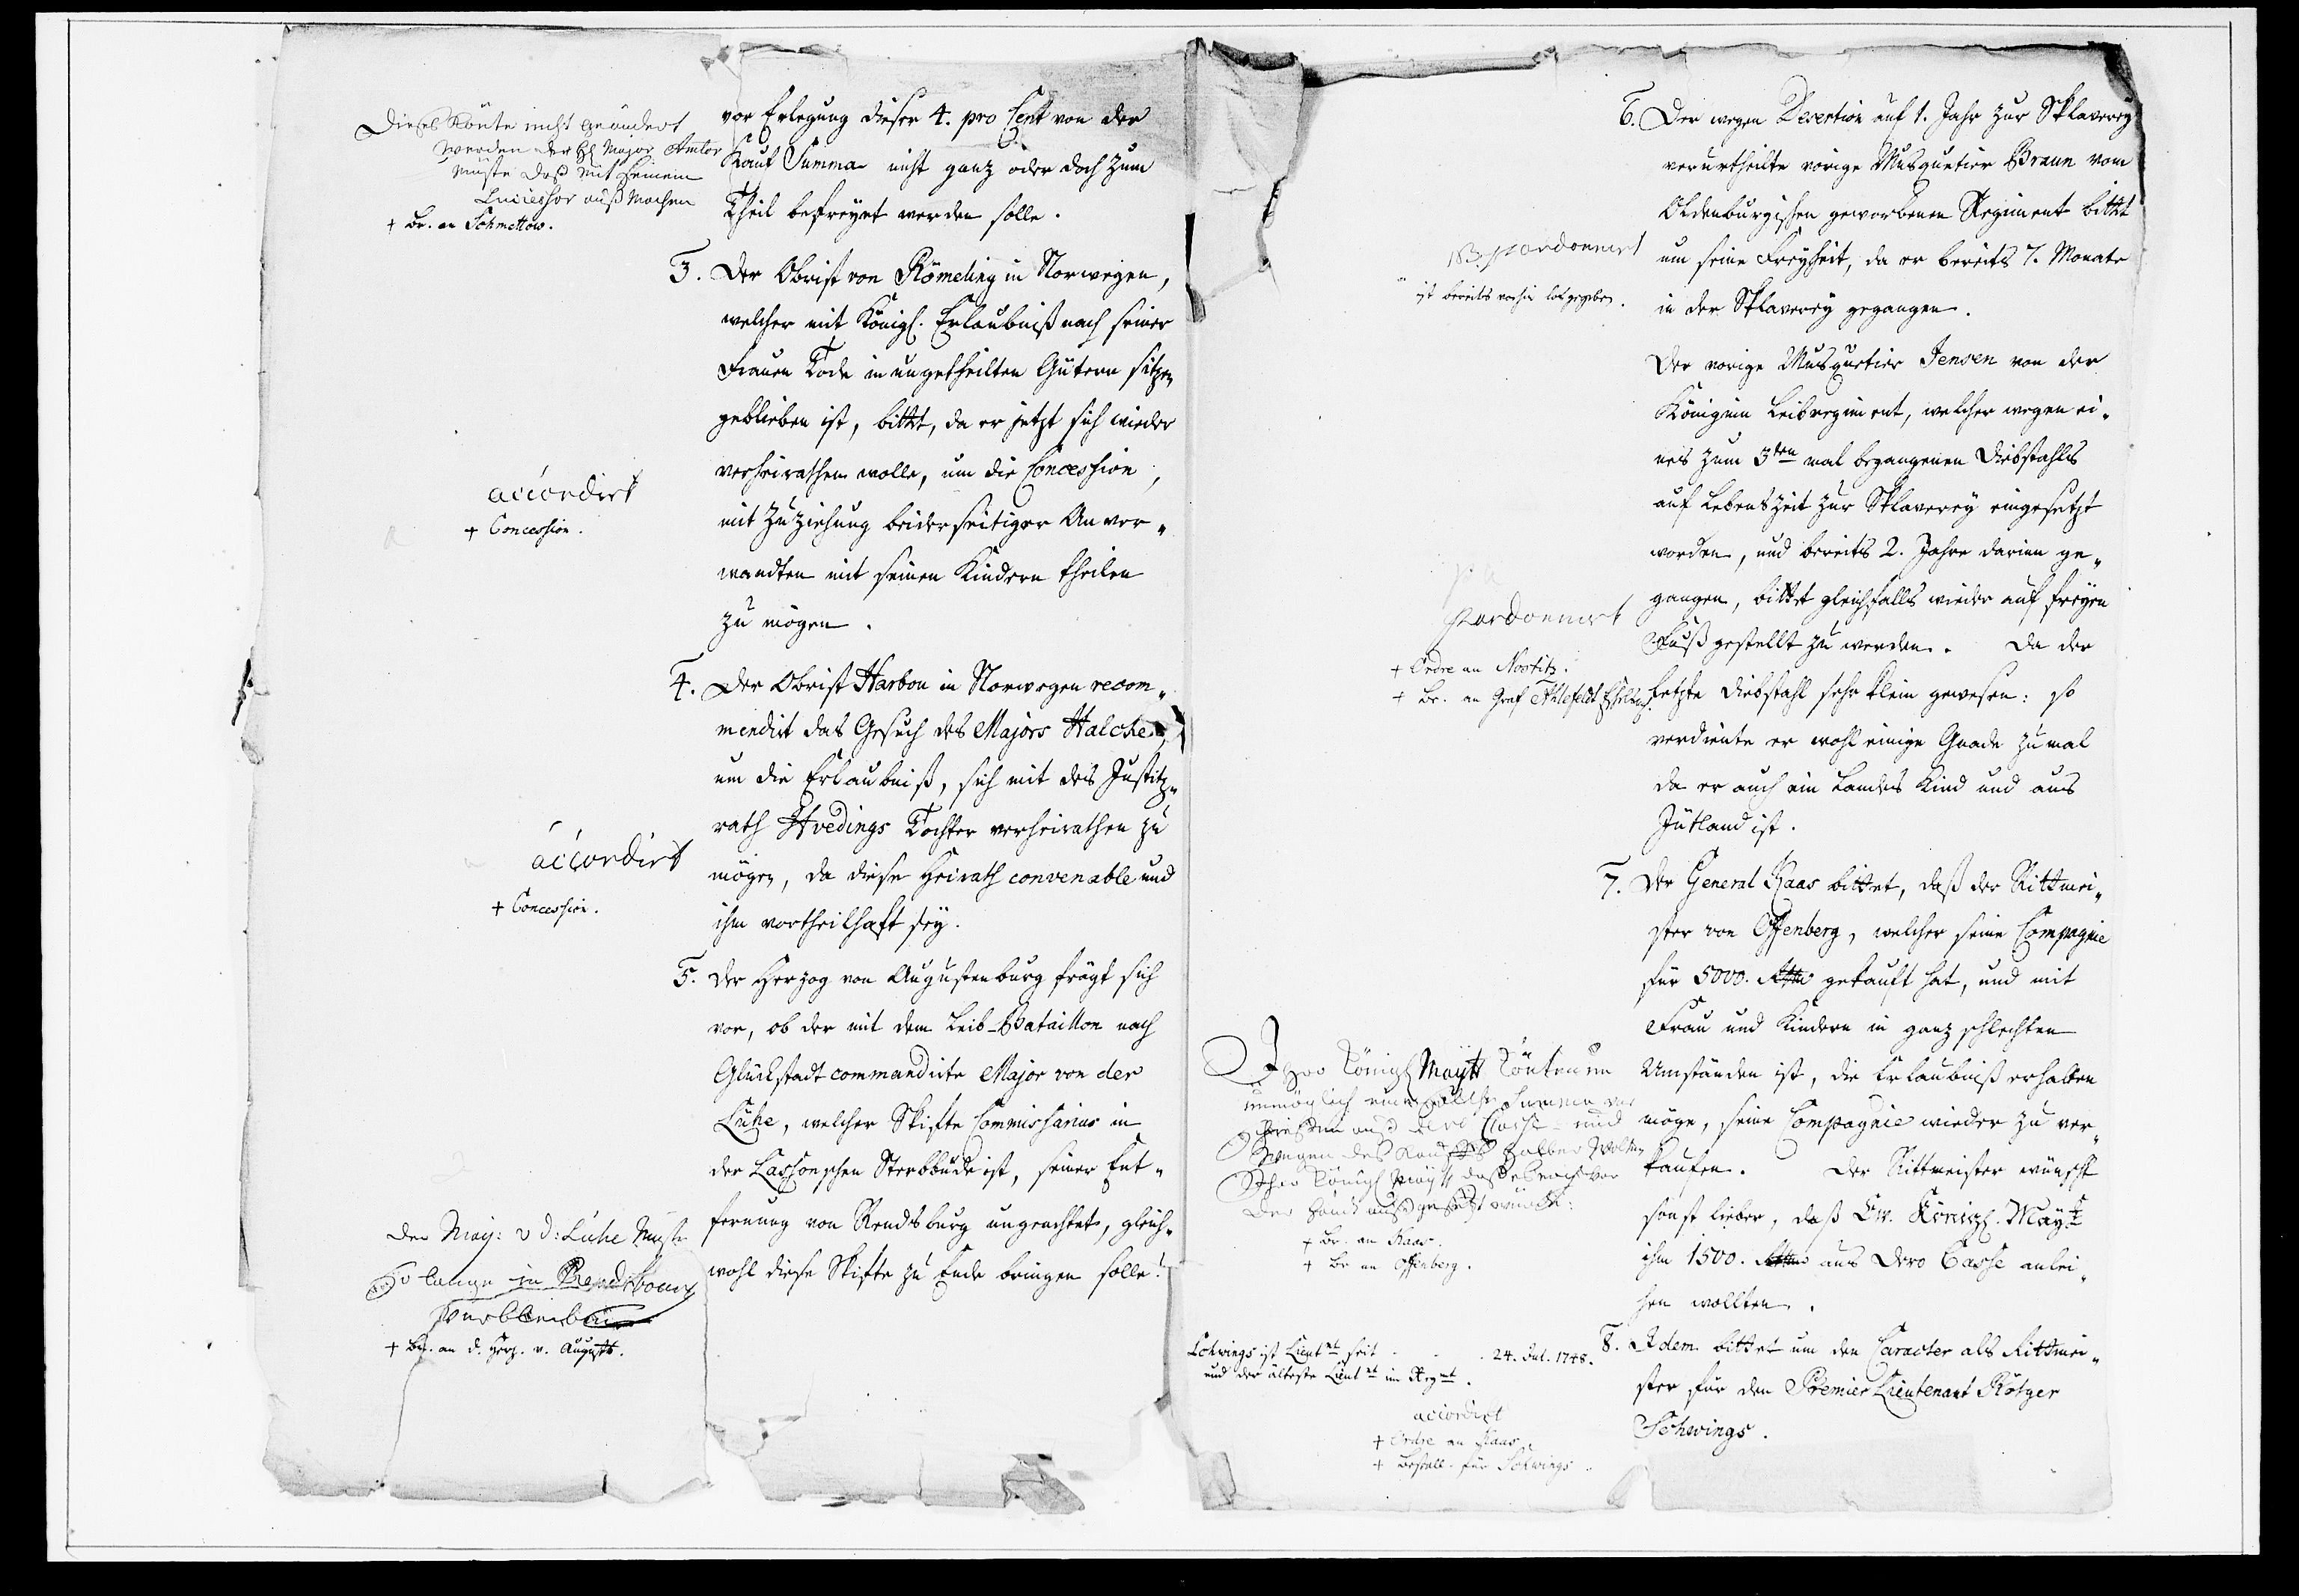 Dieses könte nicht geändert
werden der H. Major Amtor
müste das mit seinem
Successor auß machen
+ Br. an Schmettow.
vor Erlegung dieser 4. pro Cent von der
Kauf Summa nicht ganz oder doch zum
Theil befreyet werden solle.
3. Der Obrist von Römeling in Norwegen,
welcher mit Königl. Erlaubniß nach seiner
Frauen Tode in ungetheilten Gütern sitzen
geblieben ist, bittet, da er jetzt sich wieder
verheirathen wolle, um die Concession,
mit Zuziehung beiderseitiger Anver-
wandten mit seinen Kindern theilen
zu mögen.
accordirt
+ Concession.
4. Der Obrist Harbou in Norwegen recom-
mendirt das Gesuch des Majors Halcke
um die Erlaubniß, sich mit des Justitz-
rath Hvedings Tochter verheirathen zu
mögen, da diese Heirath convenable und
ihm vortheilhaft sey.
accordirt
+ Concession.
5. Der Herzog von Augustenburg frägt sich
vor, ob der mit dem Leib-Bataillon nach
Glückstadt commandirte Major von der
Lühe, welcher Skifte Commissarius in
der Lassonschen Sterbbude ist, seiner Ent-
fernung von Rendsburg ungeachtet, gleich-
wohl diese Skifte zu Ende bringen solle?
Der Maj: v d: Lühe Muste
So lange in Rendsbourg
verbleiben
+ Br. an d. Herz. v. Augustb.
6. Der wegen Desertion auf 1. Jahr zur Sklaverey
verurtheilte vorige Musquetier Braun vom
Oldenburgischen geworbenen Regiment bittet
um seine Freyheit, da er bereits 7. Monate
in der Sklaverey gegangen.
pardonnirt
ist bereits vorhin losgegeben.
Der vorige Musquetier Jensen von der
Königinn Leibregiment, welcher wegen ei-
nes zum 3ten mal begangenen Diebstahls
auf Lebenszeit zur Sklaverey eingesetzt
worden, und bereits 2. Jahre darinn ge-
gangen, bittet gleichfalls wieder auf freyen
Fuß gestellt zu werden. Da der
letzte Diebstahl sehr klein gewesen: so
verdiente er wohl einige Gnade zumal
da er auch ein Landes Kind und aus
Jütland ist.
pardonnirt
+ Ordre an Nostitz.
+ Br. an Graf Ahlefeldt
7. Der General Kaas bittet, daß der Rittmei-
ster von Offenberg, welcher seine Compagnie
für 5000. Rthlr gekauft hat, und mit
Frau und Kindern in ganz schlechten
Umständen ist, die Erlaubniß erhalten
möge, seine Compagnie wieder zu ver-
kaufen. Der Rittmeister wünscht
sonst lieber, daß Ew. Königl. Maytt
ihm 1500. Rthlr aus Dero Casse anlei-
hen wollten.
Ihro Königl Maytt könten
unmöglich eine solche Summe vor
schießen auß dero Casse und
Wegen des Kauffs halber wolten
Ihro Königl Maytt daß es noch vor
der Hand außgesetzt würde:
+ Br. an Kaas.
+ Br an Offenberg.
8. Idem bittet um den Caracter als Rittmei-
ster für den Premier Lieutenant Rötger
Schwings.
Schwings ist Lieutnt seit 24. Jul. 1748.
und der älteste Lieutnt im Regmt.
accordirt
+ Ordre an Kaas.
+ Bestall. für Schwings.